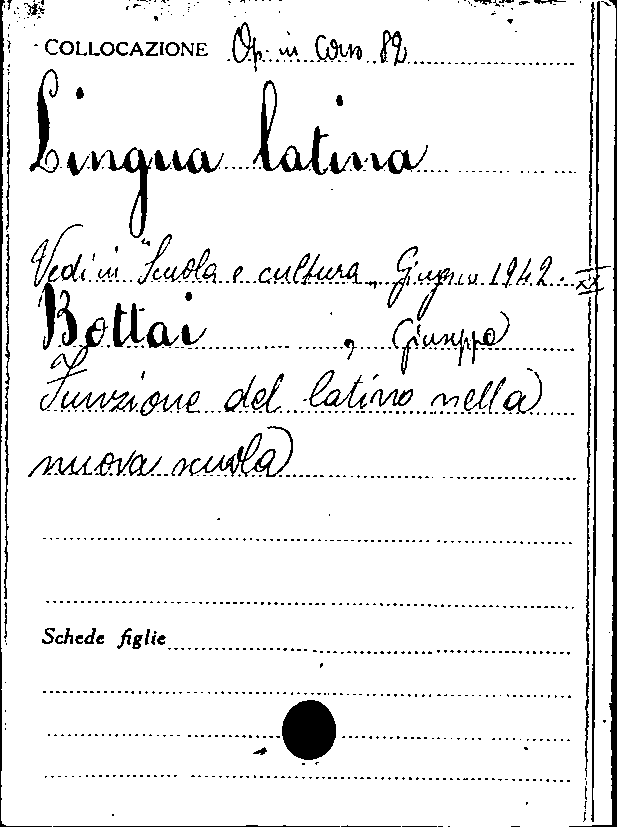 COLLOCAZIONE Op. in Corso 82
Lingua latina
Vedi in "Scuola e cultura„ Giugno 1942. XX
Bottai , Giuseppe
Funzione del latino nella
nuova scuola
Schede figlie